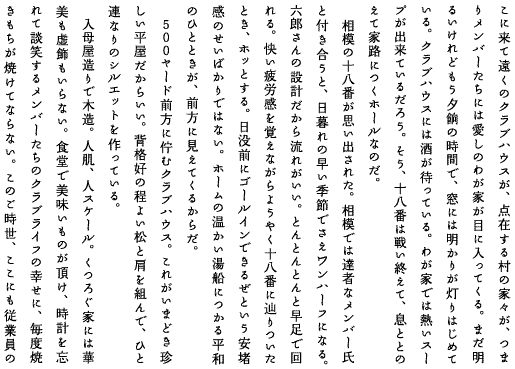 こに来て遠くのクラブハウスが、点在する村の家々が、つま
りメンバーたちには愛しのわが家が目に入ってくる。まだ明
るいけれどもう夕餉の時間で、窓には明かりが灯りはじめて
いる。クラブハウスには酒が待っている。わが家では熱いスー
プが出来ているだろう。そう、十八番は戦い終えて、息ととの
えて家路につくホールなのだ。
相模の十八番が思い出された。相模では達者なメンバー氏
と付き合うと、日暮れの早い季節でさえワンハーフになる。
六郎さんの設計だから流れがいい。とんとんとんと早足で回
れる。快い疲労感を覚えながらようやく十八番に辿りついた
とき、ホッとする。日没前にゴールインできるぞという安堵
感のせいばかりではない。ホームの温かい湯船につかる平和
のひとときが、前方に見えてくるからだ。
500ヤード前方に佇むクラブハウス。これがいまどき珍
しい平屋だからいい。背格好の程よい松と肩を組んで、ひと
連なりのシルエットを作っている。
入母屋造りで木造。人肌、人スケール。くつろぐ家には華
美も虚飾もいらない。食堂で美味いものが頂け、時計を忘
れて談笑するメンバーたちのクラブライフの幸せに、毎度焼
きもちが焼けてならない。このご時世、ここにも従業員の